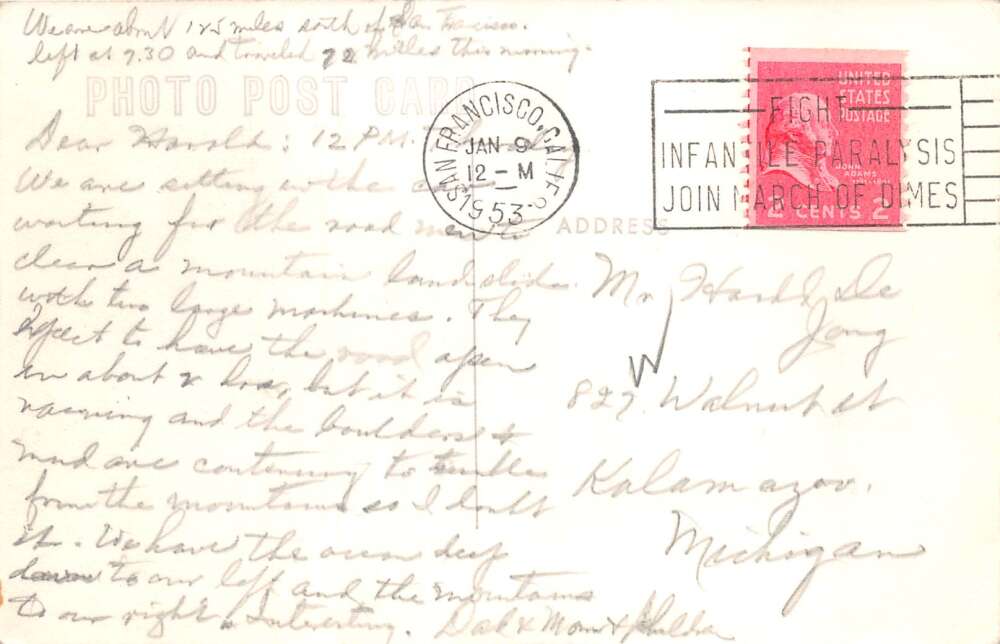 We are about 125 miles south of San Francisco.
left at 7.30 and traveled 72 miles this morning.
PHOTO POST CARD
SAN FRANCISCO, CALIF.
JAN 9
12 - M
1953
FIGHT
INFANTILE PARALYSIS
JOIN MARCH OF DIMES
UNITED
STATES
POSTAGE
JOHN
ADAMS
2 CENTS 2
Dear Harold: 12 P.M.
We are setting in the car
waiting for the road men to
clear a mountain landslide
with two large machines. They
expect to have the road open
in about 2 hrs, but it is
raining and the boulders &
mud are contenuing to tumble
from the mountains so I doubt
it. We have the ocean deep
down to our left and the mountains
to our right. Interesting. Dad & Mom & Children
ADDRESS
Mr Harold De
Jong
827 W Walnut st
Kalamazoo.
Michigan